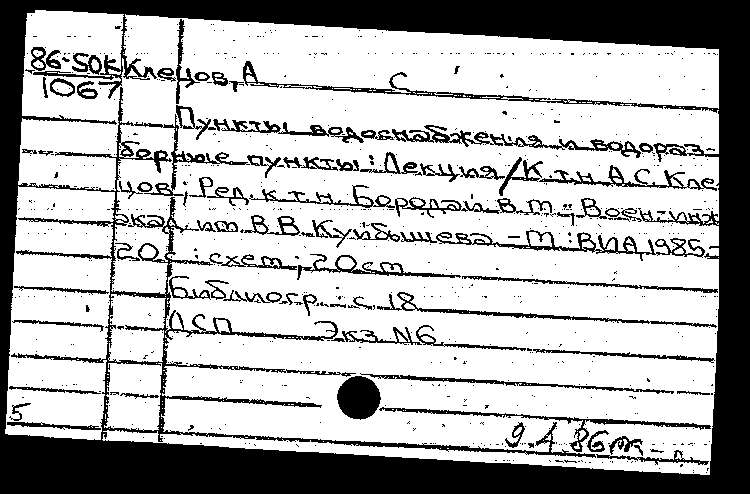 86-5ОК Клецов, А С
1067
Пункты водоснабжения и водораз-
борные пункты: Лекция/К.т.н. А.С. Кле
цов; Ред. к.т.н. Бородай В.т.; Воен-инж
акад. им. В.В. Куйбышева. - М.: ВИА, 1985.-
20с.: схем; 20см
Библиогр.: с 18
ДСП Экз. N6
5
9.4.86